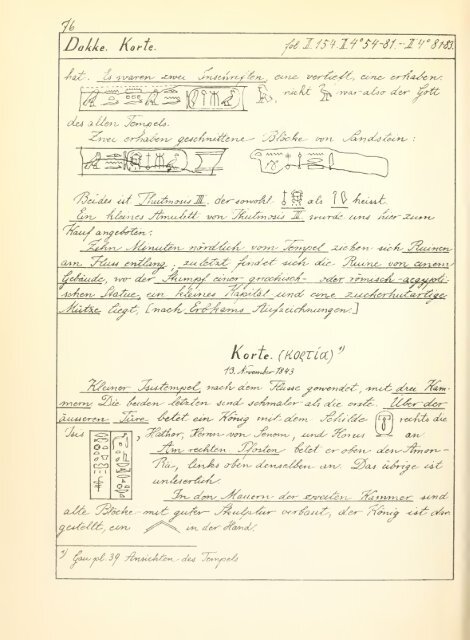 76
Dakke. Korte. fol II. 154. II 4° 54-81. - II 4° 81-83.
hat. Es waren zwei Inschriften, eine vertieft, eine erhaben:
nicht war also der Gott
des alten Tempels.
Zwei erhaben geschnittene Blöcke von Sandstein:
Beides ist Thutmosis III. der sowohl als heisst.
Ein kleines Amulett von Thutmosis III wurde uns hier zum
Kauf angeboten.
Zehn Minuten nördlich vom Tempel ziehen sich Ruinen
am Fluss entlang, zuletzt findet sich die Ruine von einem
Gebäude, wo der Stumpf einer griechisch- oder römisch-aegypti-
schen Statue, ein kleines Kapital und eine zuckerhutartige
Mütze liegt, [nach Erbkams Aufzeichnungen.]
Korte. (Κορτία) *)
13. November 1843
Kleiner Isistempel nach dem Flusse gewendet, mit drei Kam-
mern. Die beiden letzten sind schmaler als die erste. Über der
äusseren Türe betet ein König mit dem Schilde rechts die
Isis, Hathor, Horus von Senem, und Horus an.
Am rechten Pfosten betet er oben den Amon-
Ra, links oben denselben an. Das übrige ist
unleserlich.
In den Mauern der zweiten Kammer sind
alte Blöcke mit guter Skulptur verbaut, der König ist dar-
gestellt, ein in der Hand.
*) Gau pl. 39 Ansichten des Tempels